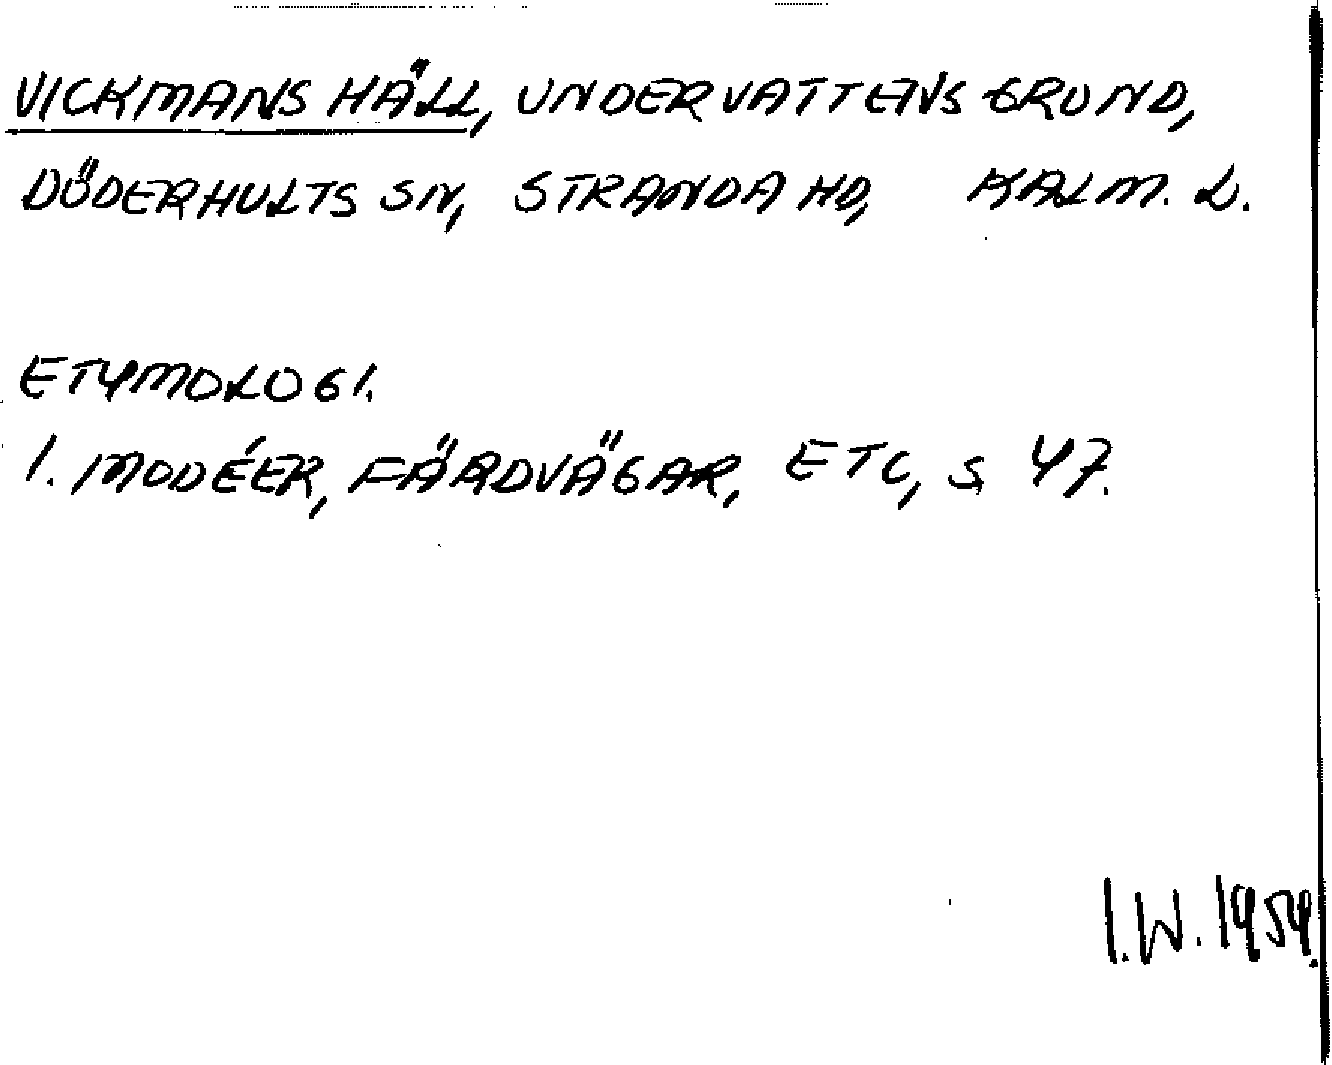 VICKMANS HÄLL, UNDERVATTENSGRUND,
DÖDERHULTS SN, STRANDA HD, KALM. L.
ETYMOLOGI.
1. MODÉER, FÄRDVÄGAR, ETC, S 47.
I.W. 1959.